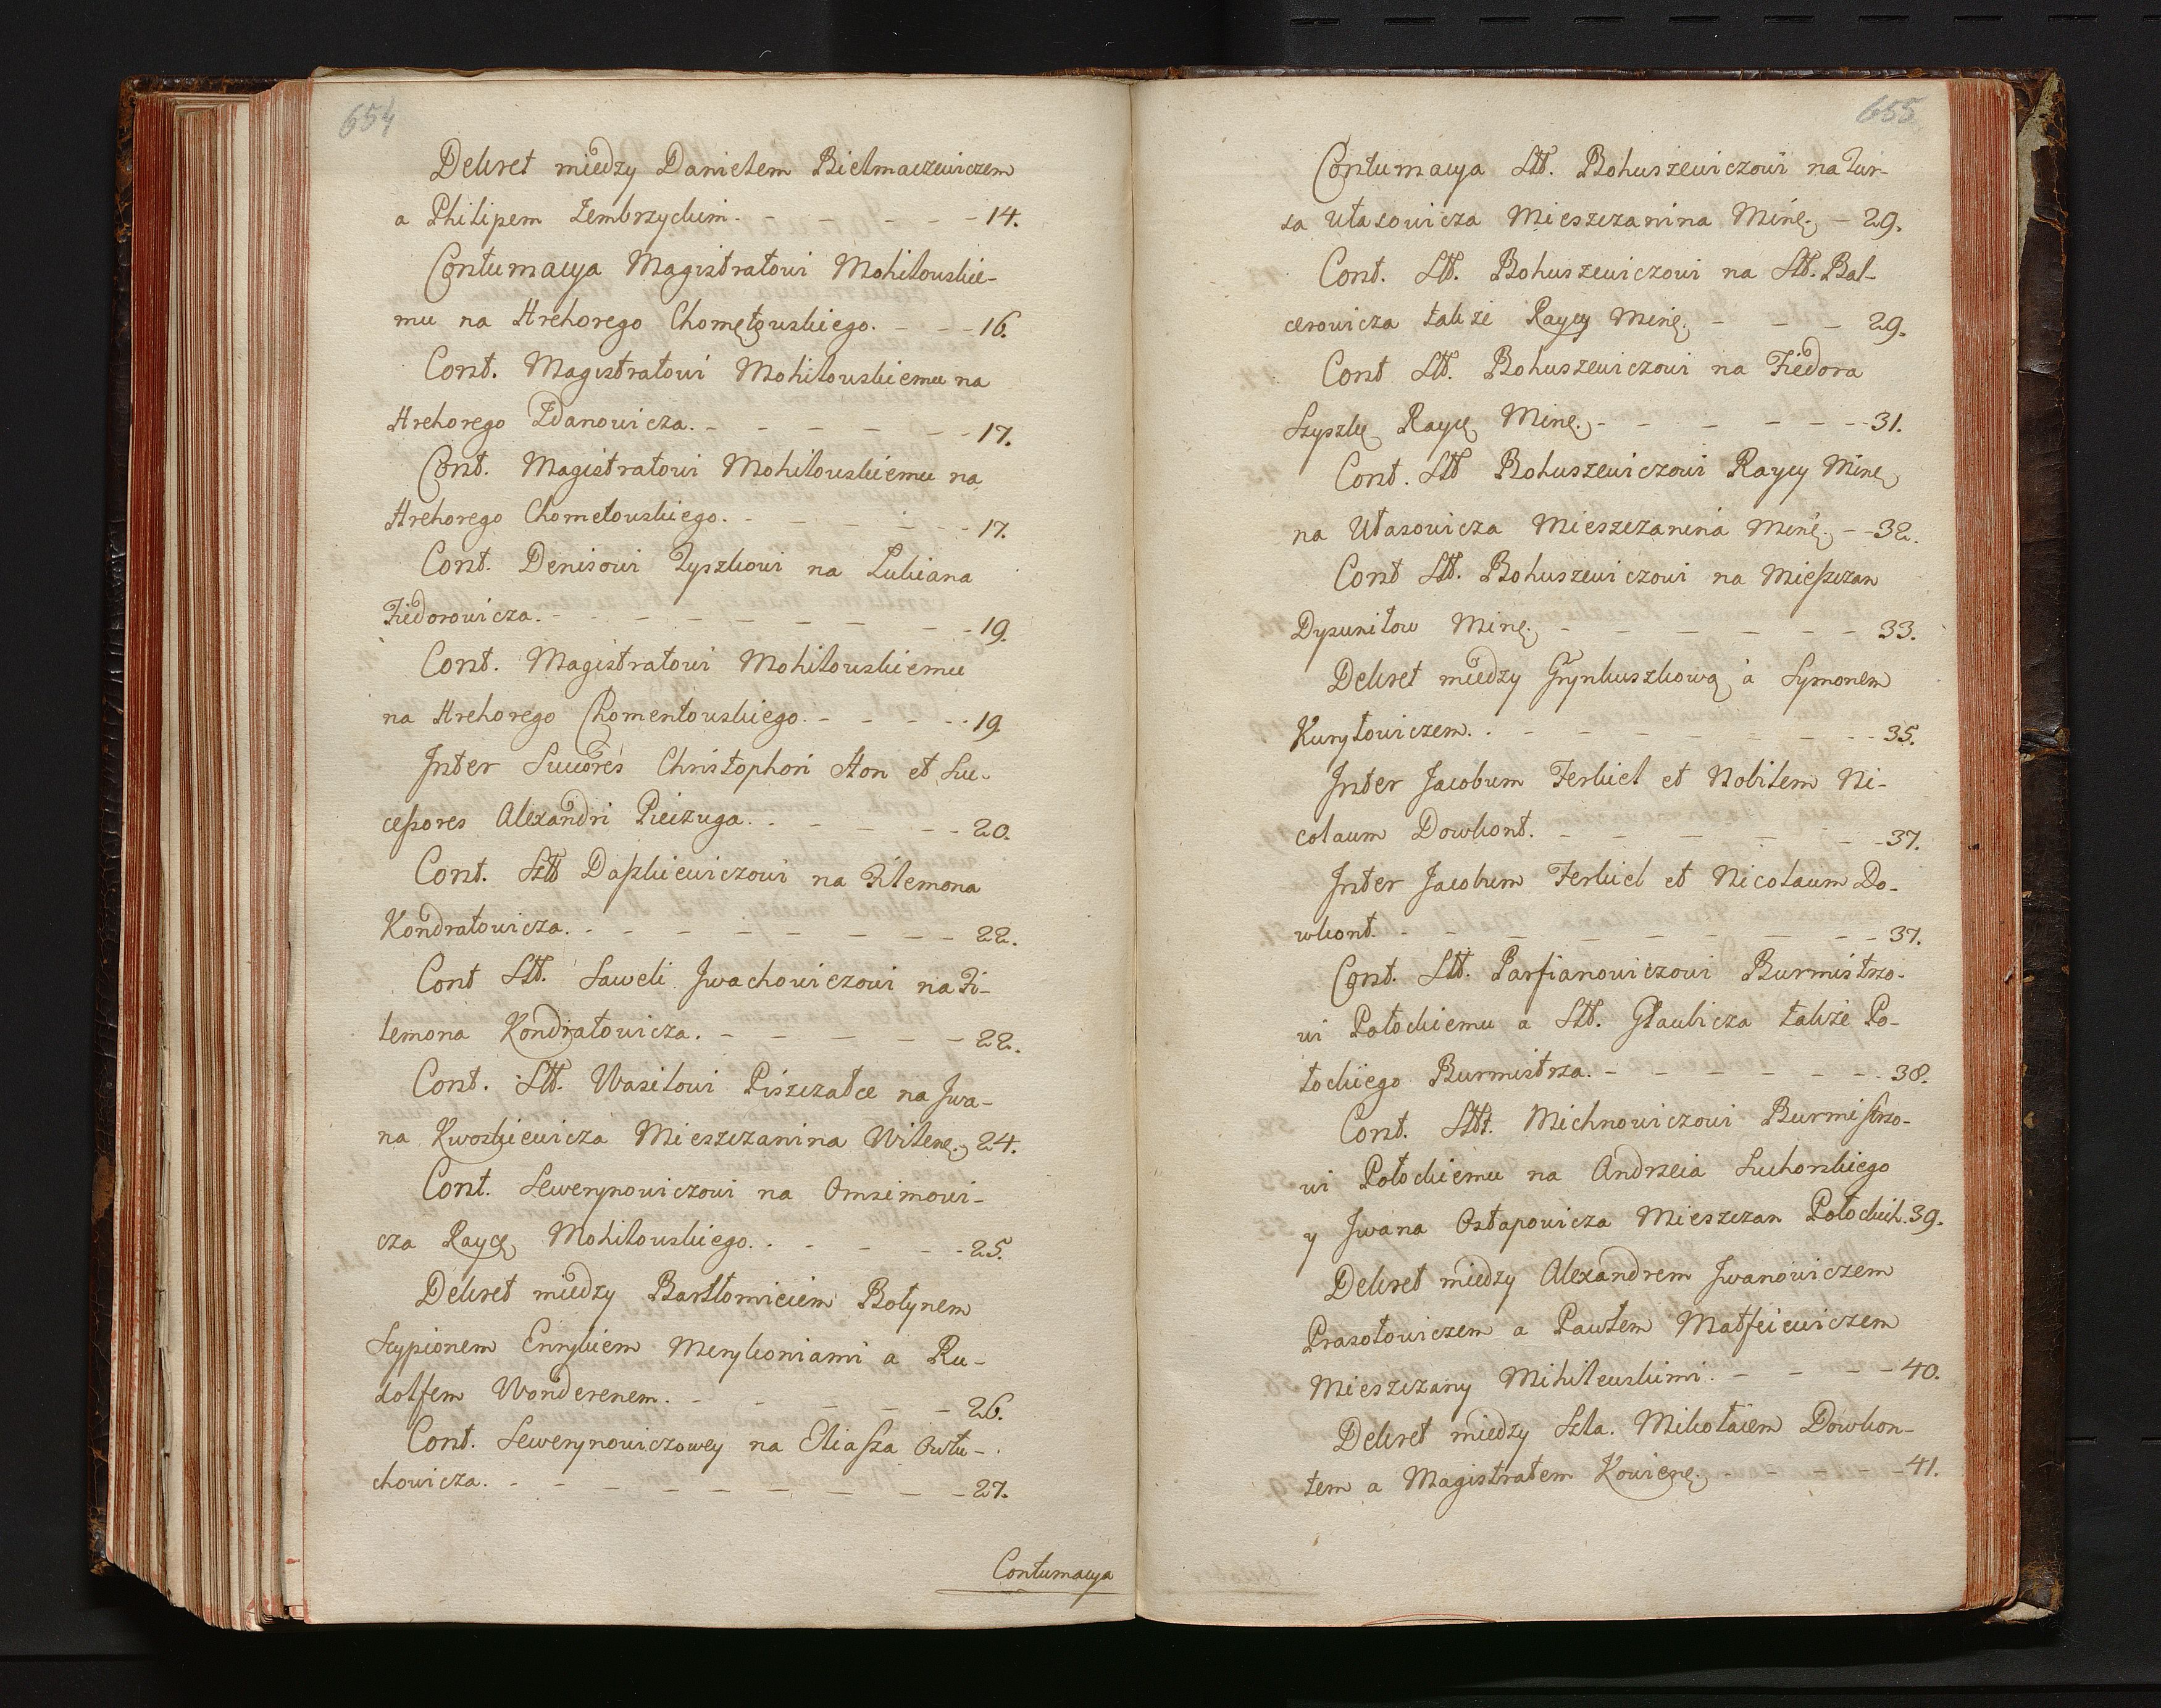 654
Dekret między Danielem Bielmaczewiczem
a Philipem Zembrzyckim. - - - - - 14.
Contumacya Magistratowi Mohilowskie-
mu na Hrehorego Chomętowskiego. - - - 16.
Cont. Magistratowi Mohilowskiemu na
Hrehorego Zdanowicza. - - - - - - 17.
Cont. Magistratowi Mohilowskiemu na
Hrehorego Chometowskiego. - - - - - 17.
Cont. Denisowi Zyszkowi na Lukiana
Fiedorowicza. - - - - - - - - 19.
Cont. Magistratowi Mohilowskiemu
na Hrehorego Chomentowskiego. - - - - 19.
Inter Succores Christophori Hon et Suc-
cessores Alexandri Pieizuga. - - - - - 20.
Cont. Sltt Daszkiewiczowi na Filemona
Kondratowicza. - - - - - - - - 22.
Cont Stt. Saweli Jwachowiczowi na Fi-
lemona Kondratowicza. - - - - - 22.
Cont. Stt. Wasilowi Piszczałce na Jwa-
na Kwoskiewicza Mieszczanina Wilenę. 24.
Cont. Sewerynowiczowi na Omsimowi-
cza Raycę Mohilowskiego. - - - - - 25.
Dekret między Bartłomieiem Bolynem
Scypionem Enrykiem Merykoniami a Ru-
dolfem Wonderenem. - - - - - - 26.
Cont. Sewerynowiczowey na Eliasza Owłu-
chowicza. - - - - - - - - - 27.
Contumacya
655
Contumacya Stt. Bohuszewiczowi na Zur-
sa Utasowicza Mieszczanina Minę. - 29.
Cont. Stt. Bohuszewiczowi na Stt. Bal-
cerowicza także Raycy Minę. - - - 29.
Cont Stt. Bohuszewiczowi na Fiedora
Szyszkę Raycę Minę. - - - - - - 31.
Cont. Stt Bohuszewiczowi Raycy Minę
na Utasowicza Mieszczanina Minę. - - 32.
Cont Stt. Bohuszewiczowi na Mieszczan
Dyzunitow Minę. - - - - - - 33.
Dekret między Grynkuszkową a Symonem
Kuryłowiczem. - - - - - - - - 35.
Inter Jacobum Ferkiel et Nobilem Ni-
colaum Dowkont. - - - - - - - 37.
Inter Jacobum Ferkiel et Nicolaum Do-
wkont. - - - - - - - - - - 37.
Cont. Stt. Parfianowiczowi Burmistrzo-
wi Połockiemu a Stt. Głaubicza także Po-
łockiego Burmistrza. - - - - - - 38.
Cont. Sttt. Michnowiczowi Burmistrzo-
wi Połockiemu na Andrzeia Suchorskiego
y Jwana Ostapowicza Mieszczan Połockich. 39.
Dekret między Alexandrem Jwanowiczem
Prasołowiczem a Pawłem Matfeiewiczem
Mieszczany Mihilewskimi. - - - - 40.
Dekret między Szla. Mikołaiem Dowkon-
tem a Magistratem Kowienę. - - - - 41.